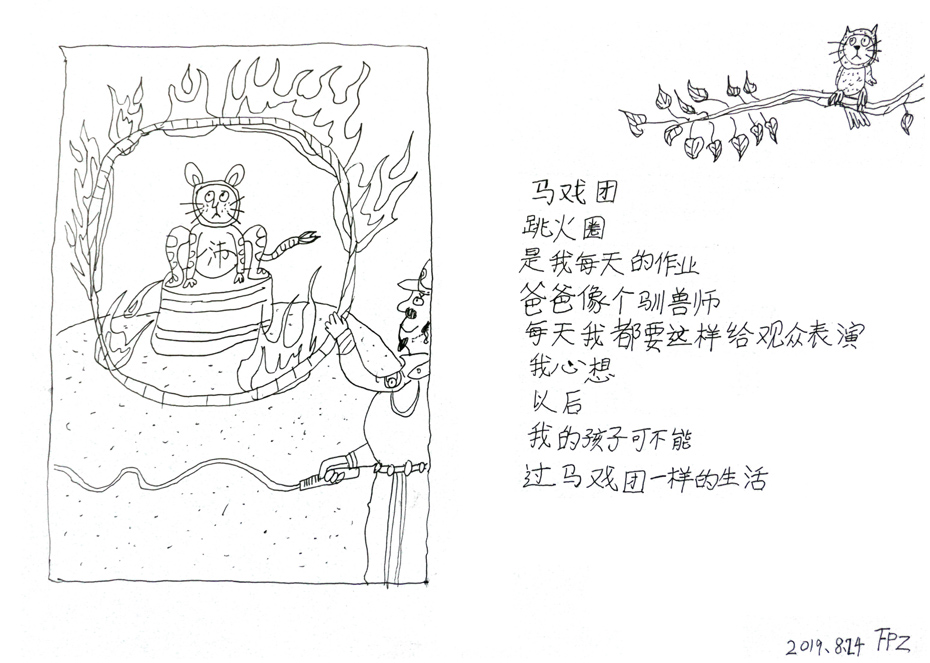 沛
马戏团
跳火圈
是我每天的作业
爸爸像个驯兽师
每天我都要这样给观众表演
我心想
以后
我的孩子可不能
过马戏团一样的生活
2019.8.14 FPZ